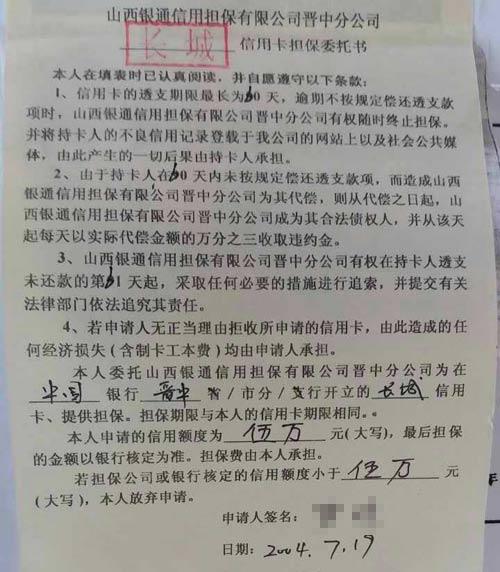 山西银通信用担保有限公司晋中分公司
长城 信用卡担保委托书
本人在填表时已认真阅读，并自愿遵守以下条款：
1、信用卡的透支期限最长为60天，逾期不按规定偿还透支款
项时，山西银通信用担保有限公司晋中分公司有权随时终止担保。
并将持卡人的不良信用记录登载于我公司的网站上以及社会公共媒
体，由此产生的一切后果由持卡人承担。
2、由于持卡人在60天内未按规定偿还透支款项，而造成山西
银通信用担保有限公司晋中分公司为其代偿，则从代偿之日起，山
西银通信用担保有限公司晋中分公司成为其合法债权人，并从该天
起每天以实际代偿金额的万分之三收取违约金。
3、山西银通信用担保有限公司晋中分公司有权在持卡人透支
未还款的第61天起，采取任何必要的措施进行追索，并提交有关
法律部门依法追究其责任。
4、若申请人无正当理由拒收所申请的信用卡，由此造成的任
何经济损失（含制卡工本费）均由申请人承担。
本人委托山西银通信用担保有限公司晋中分公司为在
中国 银行 晋中 省/市分/支行开立的 长城 信用
卡、提供担保。担保期限与本人的信用卡期限相同。。
本人申请的信用额度为 伍万 元（大写），最后担保
的金额以银行核定为准。担保费由本人承担。
若担保公司或银行核定的信用额度小于 伍万 元
（大写），本人放弃申请。
申请人签名：
日期：2004.7.19